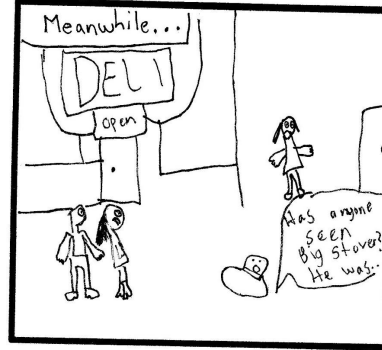 Meanwhile...
DELI
open
Has anyone
seen
Big Stover?
He was..